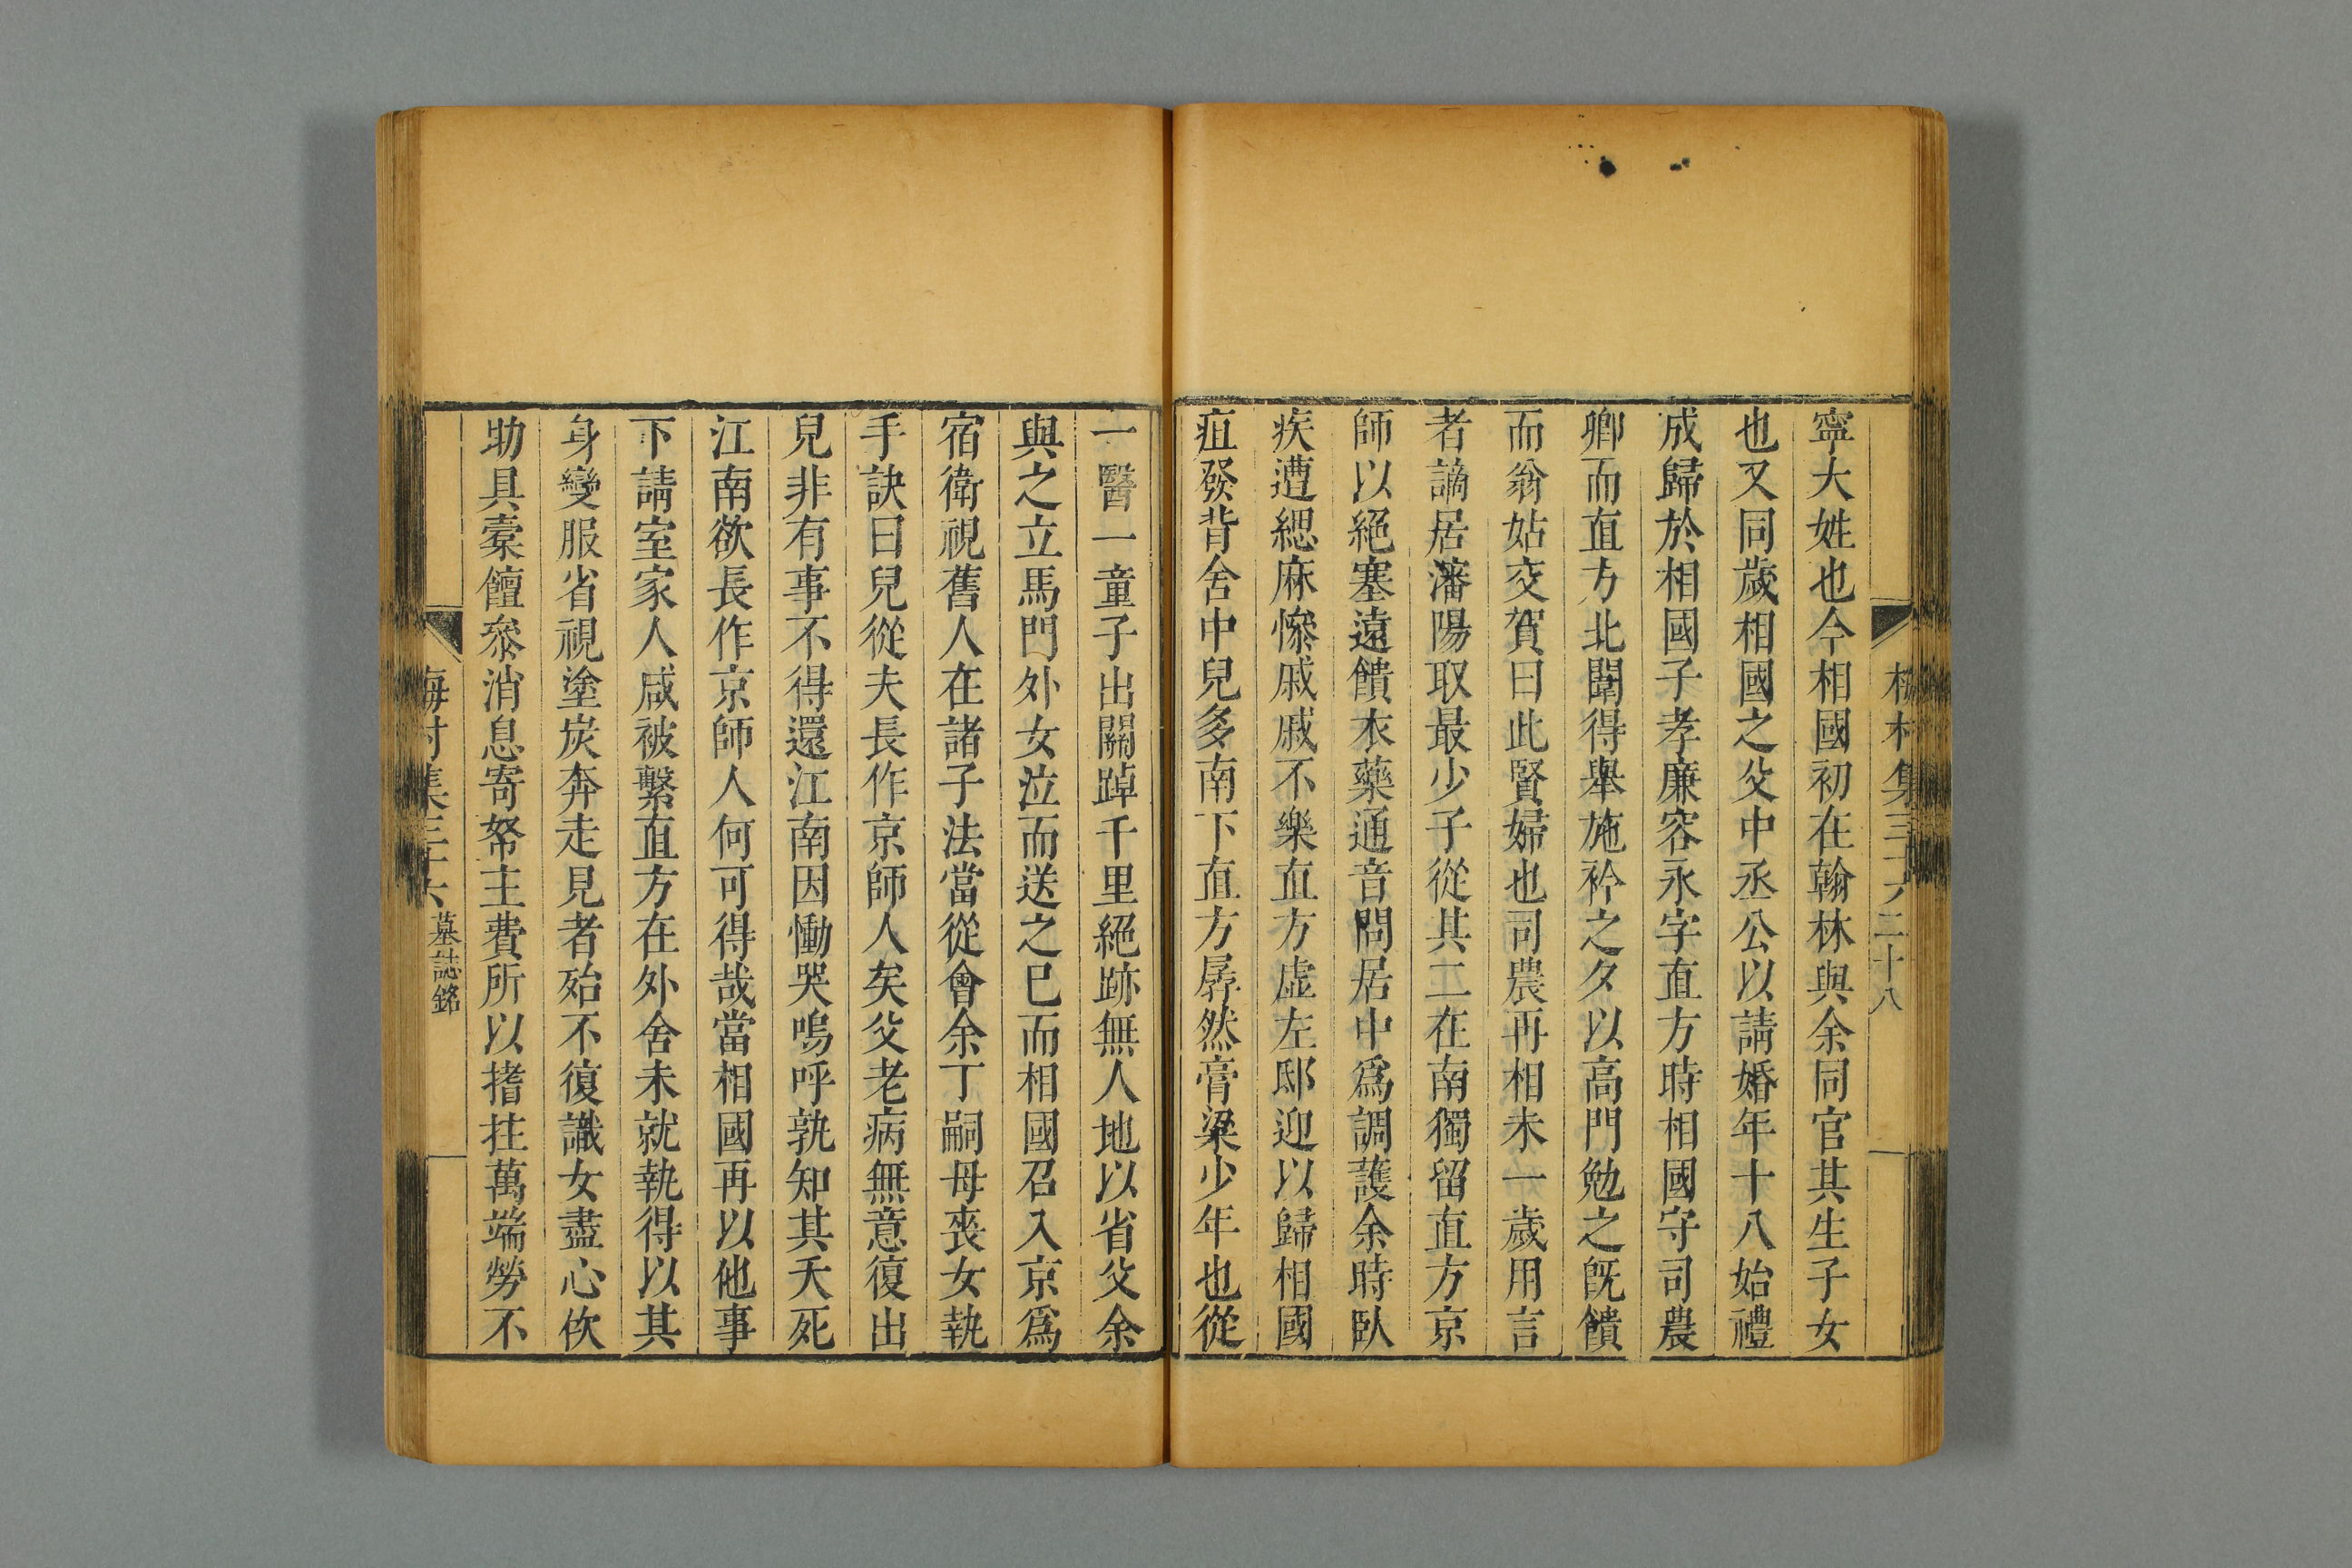 寧大姓也今相國初在翰林與余同官其生子女
也又同歲相國之父中丞公以請婚年十八始禮
成歸於相國子孝廉容永字直方時相國守司農
卿而直方北闈得舉施衿之夕以高門勉之旣饋
而翁姑交賀曰此賢婦也司農再相未一歲用言
者謫居瀋陽取最少子從其二在南獨留直方京
師以絕塞遠饋衣藥通音問居中爲調護余時臥
疾遭緦麻慘戚戚不樂直方虛左邸迎以歸相國
疽發背舍中兒多南下直方孱然膏粱少年也從
一醫一童子出關踔千里絕跡無人地以省父余
與之立馬門外女泣而送之已而相國召入京爲
宿衛視舊人在諸子法當從會余丁嗣母喪女執
手訣曰兒從夫長作京師人矣父老病無意復出
兒非有事不得還江南因慟哭嗚呼孰知其夭死
江南欲長作京師人何可得哉當相國再以他事
下請室家人咸被繫直方在外舍未就執得以其
身變服省視塗炭奔走見者殆不復識女盡心佽
助具橐饘叅消息寄帑主費所以撐拄萬端勞不
梅村集三十六 二十八
梅村集三十六 墓誌銘